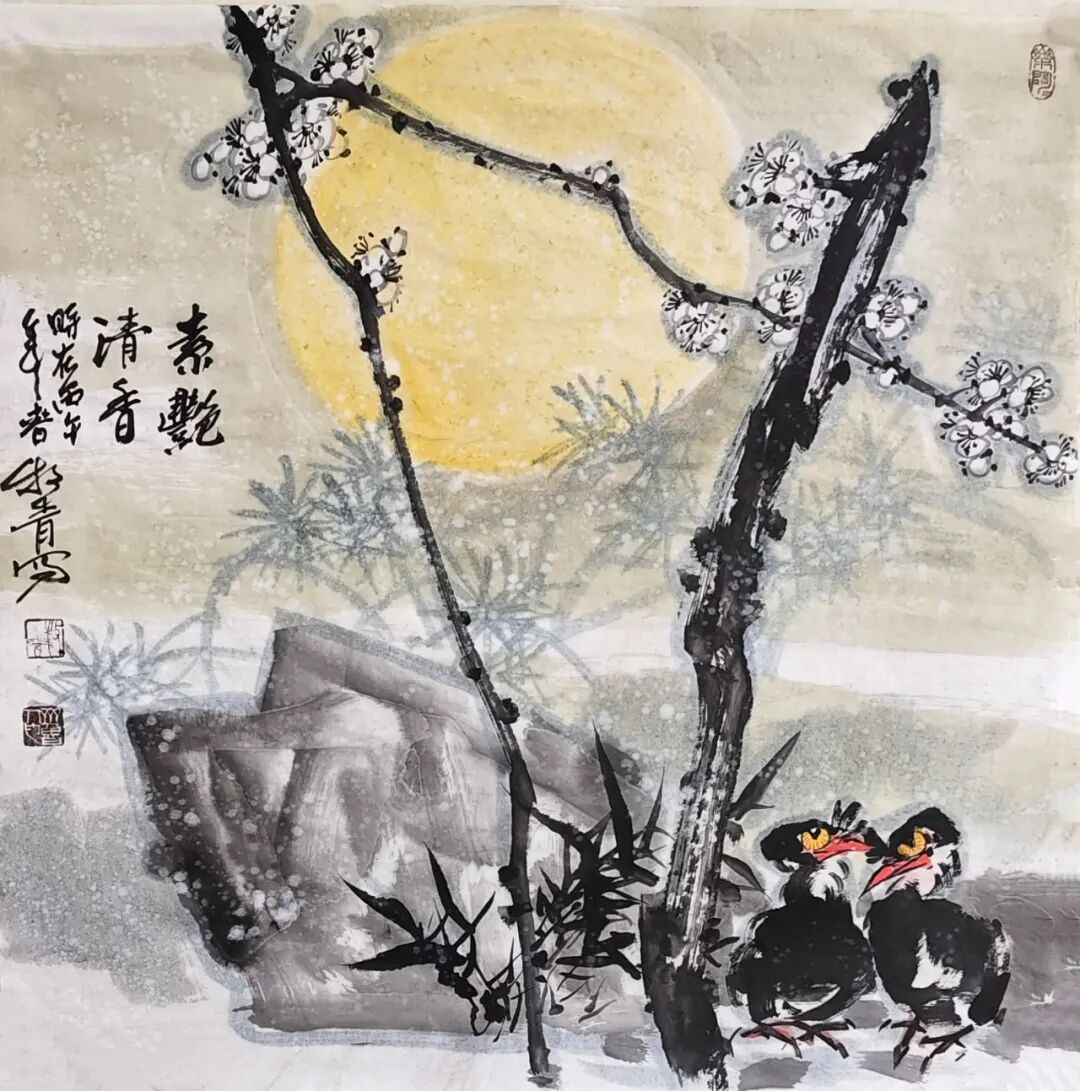 素艷
清香
時在丙午
年春
牧青寫